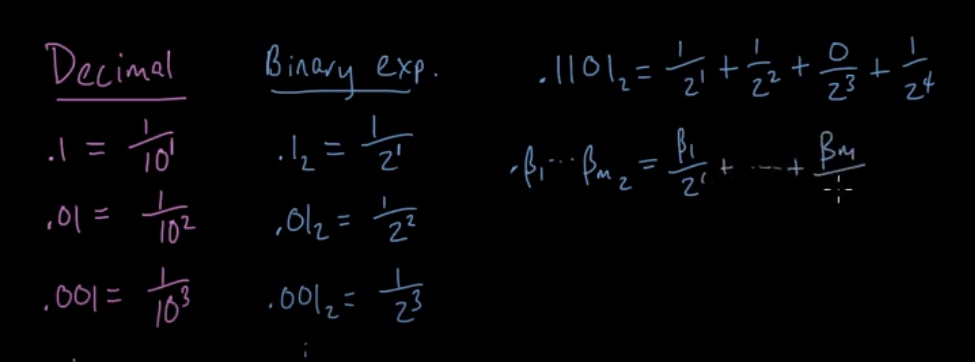 Decimal
.1 = 1/10^1
.01 = 1/10^2
.001 = 1/10^3
Binary exp.
.1₂ = 1/2^1
.01₂ = 1/2^2
.001₂ = 1/2^3
.1101₂ = 1/2^1 + 1/2^2 + 0/2^3 + 1/2^4
.β₁⋯βₘ₂ = β₁/2^1 + ⋯ + βₘ/